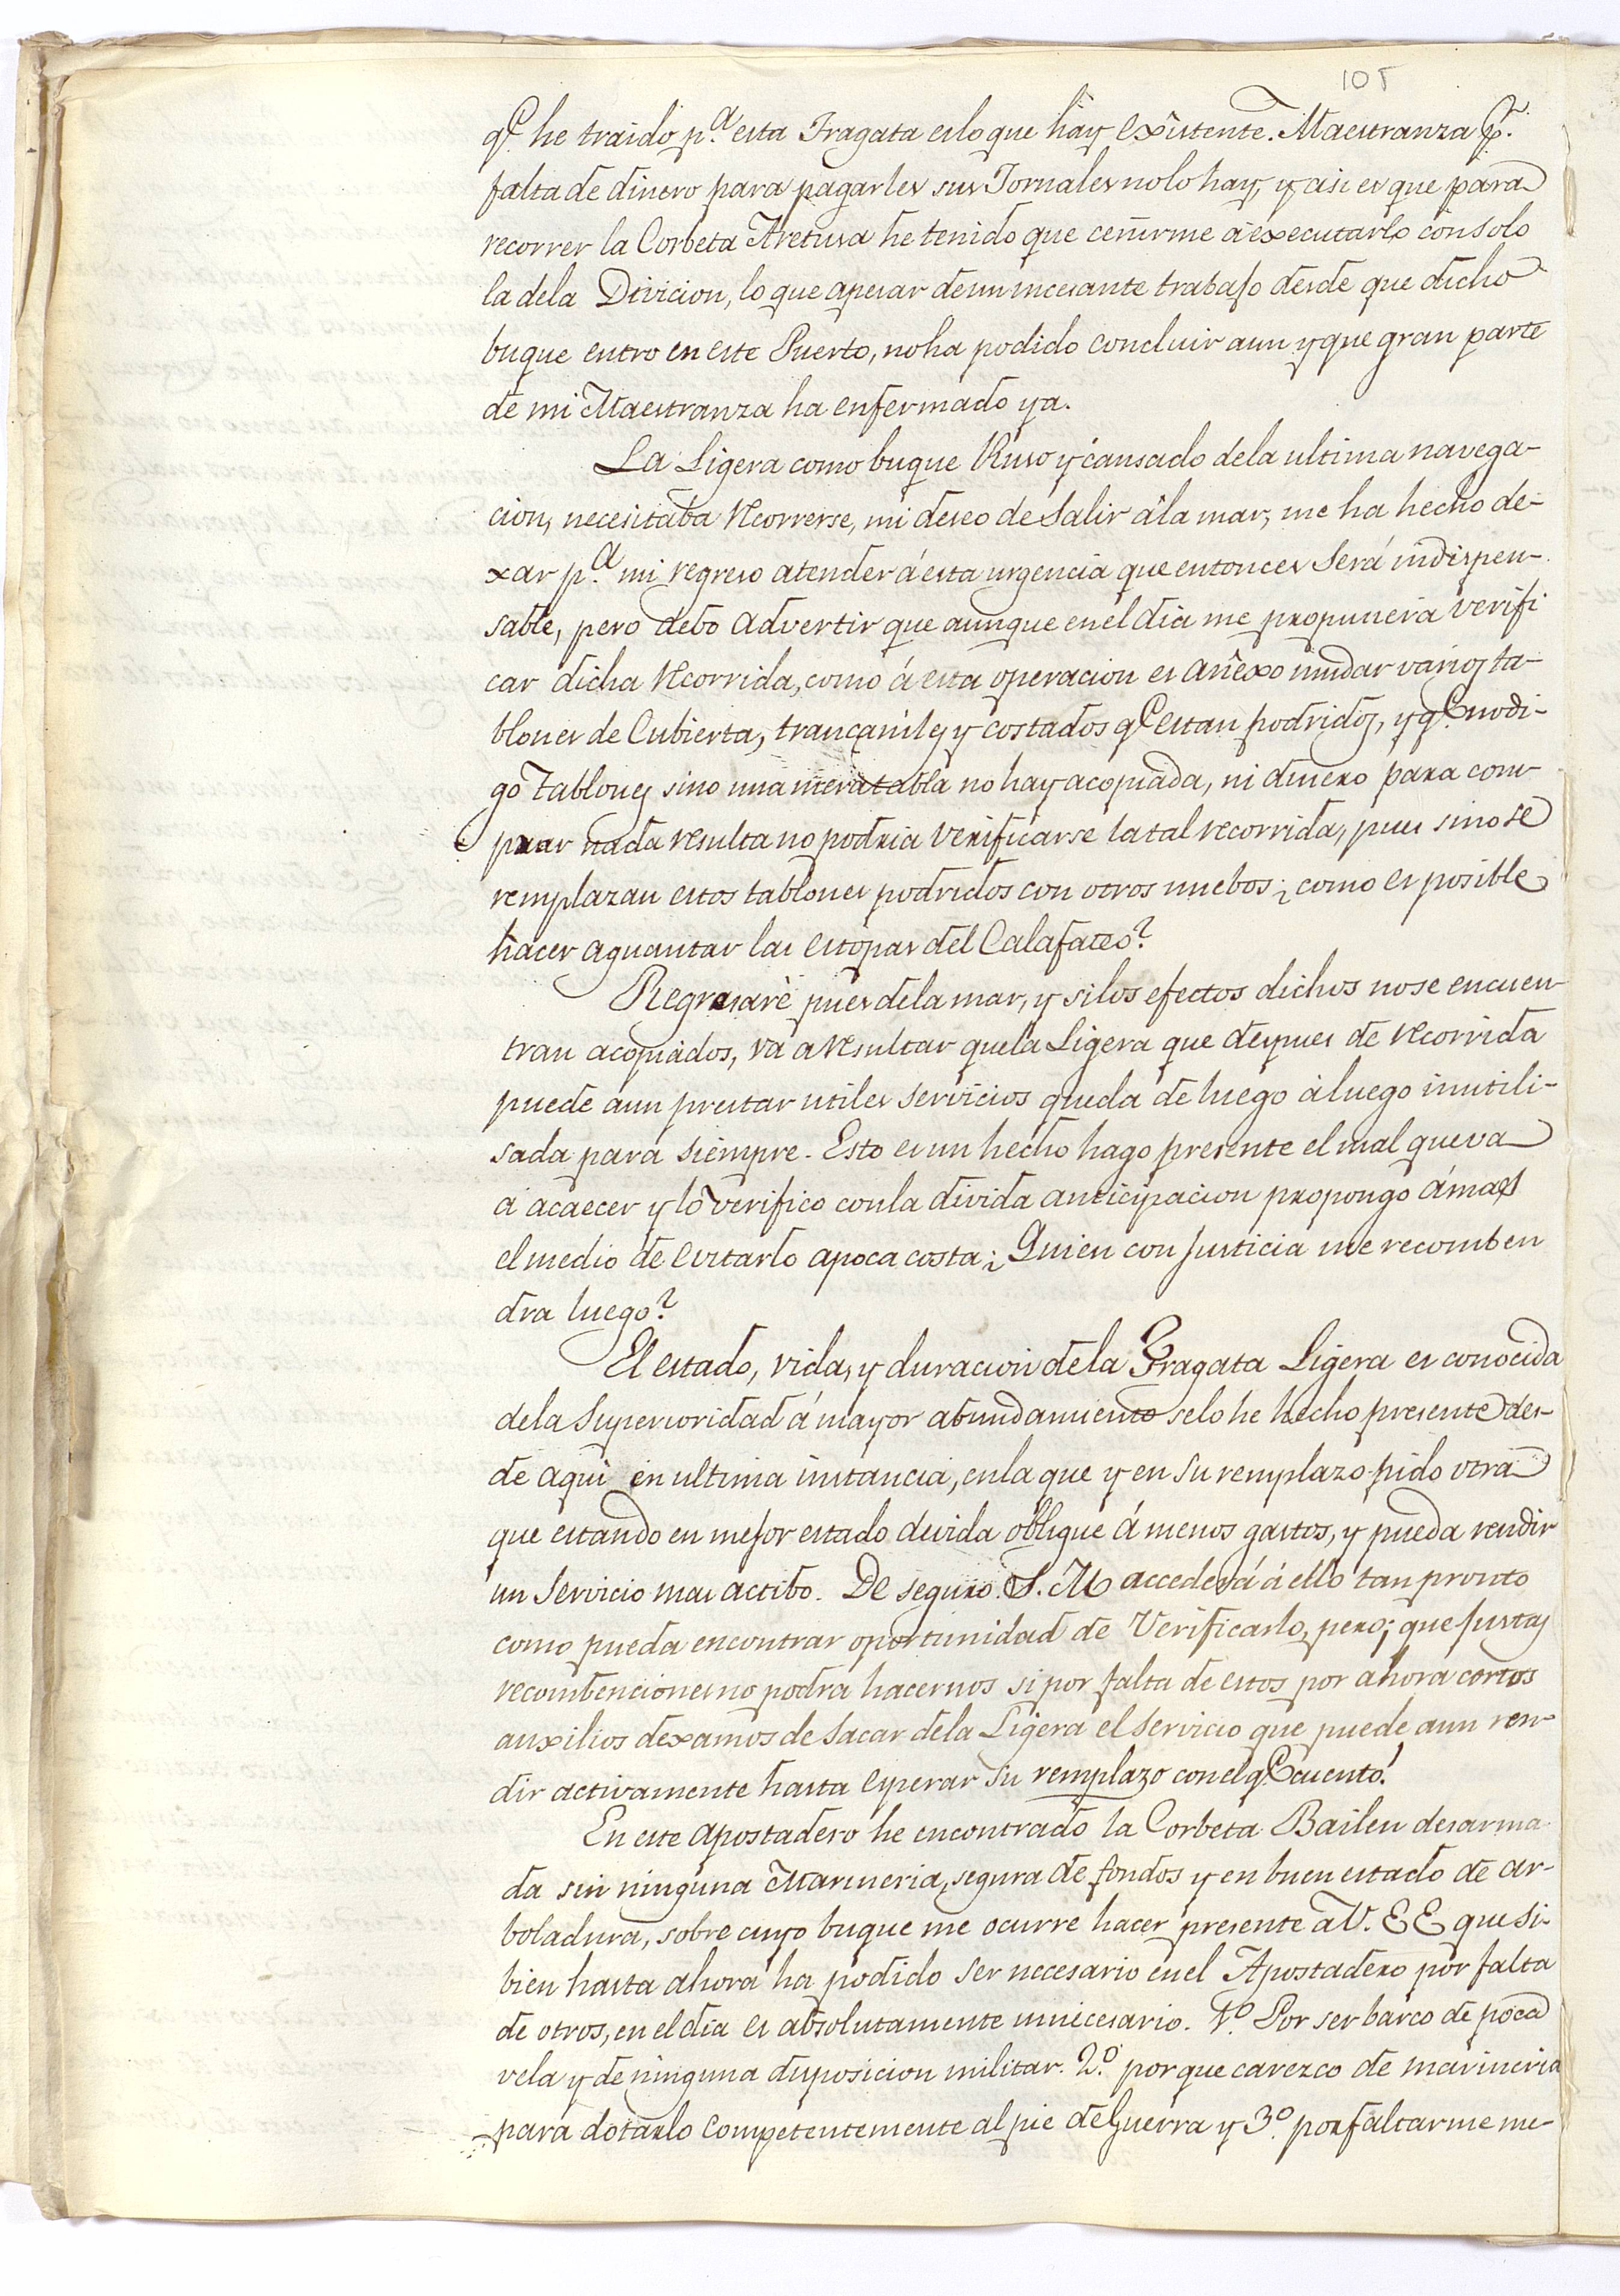 105
q.e he traido p.a esta Fragata es lo que hay existente. Maestranza p.r
falta de dinero para pagarles sus Jornales no lo hay, y asi es que para
recorrer la Corbeta Aretusa he tenido que ceñirme á executarlo con solo
la de la Divicion, lo que apesar de un incesante trabajo desde que dicho
buque entro en este Puerto, no ha podido concluir aun y que gran parte
de mi Maestranza ha enfermado ya.
La Ligera como buque Ruso y cansado de la ultima navega-
cion, necesitaba recorrerse, mi deseo de salir á la mar, me ha hecho de-
xar p.a mi regreso atender á esta urgencia que entonces será indispen-
sable, pero debo advertir que aunque en el dia me propunera verifi
car dicha recorrida, como á esta operacion es anexo mudar varios ta-
blones de Cubierta, trancaniles y costados q.e estan podridos, y q.e no di-
go tablones sino una mera tabla no hay acopiada, ni dinero para com-
prar nada resulta no podria verificarse la tal recorrida, pues sino se
remplazan estos tablones podridos con otros nuebos ¿como es posible
hacer aguantar las estopas del Calafateo?
Regresaré pues de la mar, y si los efectos dichos no se encuen-
tran acopiados, va a resultar que la Ligera que despues de recorrida
puede aun prestar utiles servicios queda de luego á luego inutili-
sada para siempre. Esto es un hecho hago presente el mal que va
á acaecer y lo verifico con la divida anticipacion propongo á mas
el medio de evitarlo a poca costa ¿Quien con Justicia me recomben
dra luego?
El estado, vida, y duracion de la Fragata Ligera es conocida
de la Superioridad á mayor abundamiento se lo he hecho presente des-
de aqui en ultima instancia, en la que y en su remplazo pido otra
que estando en mejor estado de vida obligue á menos gastos, y pueda rendir
un servicio mas actibo. De seguro S. M accederá á ello tan pronto
como pueda encontrar oportunidad de Verificarlo, pero ¡que Justas
recombenciones no podra hacernos si por falta de estos por ahora cortos
auxilios dexamos de sacar de la Ligera el servicio que puede aun ren-
dir activamente hasta esperar su remplazo con el q.e cuento!
En este Apostadero he encontrado la Corbeta Bailen desarma-
da sin ninguna Marineria, segura de fondos y en buen estado de ar-
boladura, sobre cuyo buque me ocurre hacer presente a V. EE que si-
bien hasta ahora ha podido ser necesario en el Apostadero por falta
de otros, en el dia es absolutamente innecesario. 1.o Por ser barco de poca
vela y de ninguna disposicion militar. 2.o porque carezco de marineria
para dotarlo competentemente al pie de Guerra y 3.o por faltarme me-